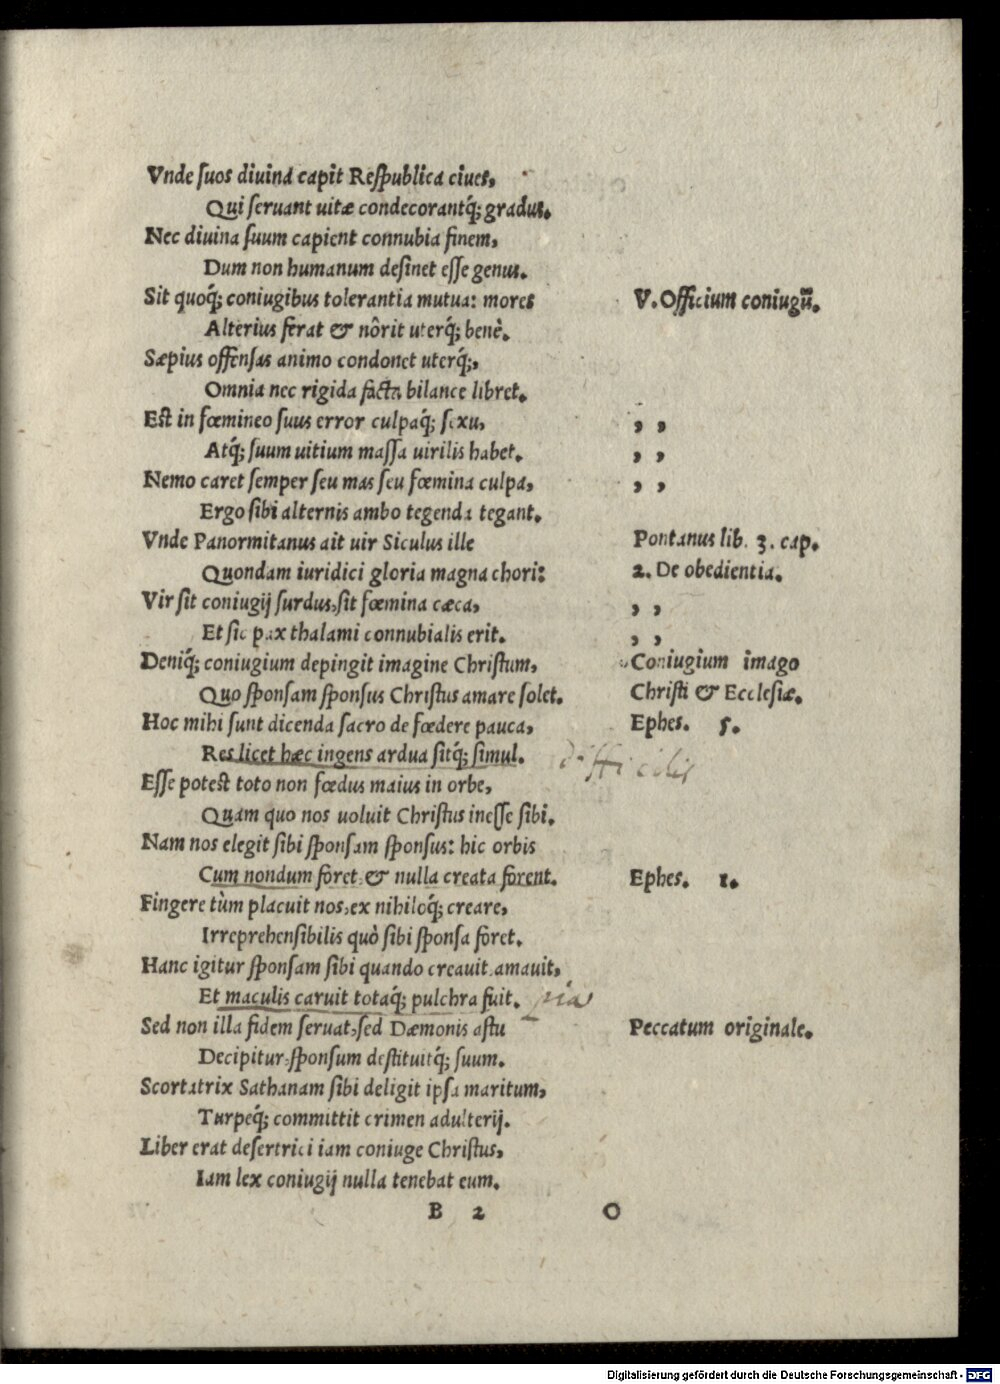 Vnde ſuos diuina capit Reſpublica ciues,
Qui ſeruant uitæ condecorantq́; gradus.
Nec diuina ſuum capient connubia finem,
Dum non humanum deſinet eſſe genus.
Sit quoq́; coniugibus tolerantia mutua: mores V. Officium coniugū.
Alterius ferat & nôrit uterq́; benè.
Sæpius offenſas animo condonet uterq́;,
Omnia nec rigida facta bilance libret.
Est in fœmineo ſuus error culpaq́; ſexu, , ,
Atq́; ſuum uitium maſſa uirilis habet. , ,
Nemo caret ſemper ſeu mas ſeu fœmina culpa, , ,
Ergo ſibi alternis ambo tegenda tegant.
Vnde Panormitanus ait uir Siculus ille Pontanus lib. 3. cap.
Quondam iuridici gloria magna chori: 2. De obedientia.
Vir ſit coniugij ſurdus, ſit fœmina cæca, , ,
Et ſic pax thalami connubialis erit. , ,
Deniq́; coniugium depingit imagine Chriſtum, Coniugium imago
Quo ſponſam ſponſus Chriſtus amare ſolet. Chriſti & Eccleſiæ.
Hoc mihi ſunt dicenda ſacro de fœdere pauca, Ephes. 5.
Res licet hæc ingens ardua ſitq́; ſimul. difficilis
Eſſe potest toto non fœdus maius in orbe,
Quam quo nos uoluit Chriſtus ineſſe ſibi.
Nam nos elegit ſibi ſponſam ſponſus: hic orbis
Cum nondum foret, & nulla creata forent. Ephes. 1.
Fingere tùm placuit nos, ex nihiloq́; creare,
Irreprehenſibilis quò ſibi ſponſa foret.
Hanc igitur ſponſam ſibi quando creauit, amauit,
Et maculis caruit totaq́; pulchra fuit. pia
Sed non illa fidem ſeruat, ſed Dæmonis aſtu Peccatum originale.
Decipitur, ſponſum deſtituitq́; ſuum.
Scortatrix Sathanam ſibi deligit ipſa maritum,
Turpeq́; committit crimen adulterij.
Liber erat deſertrici iam coniuge Chriſtus,
Iam lex coniugij nulla tenebat eum.
B 2 O
Digitalisierung gefördert durch die Deutsche Forschungsgemeinschaft - DFG